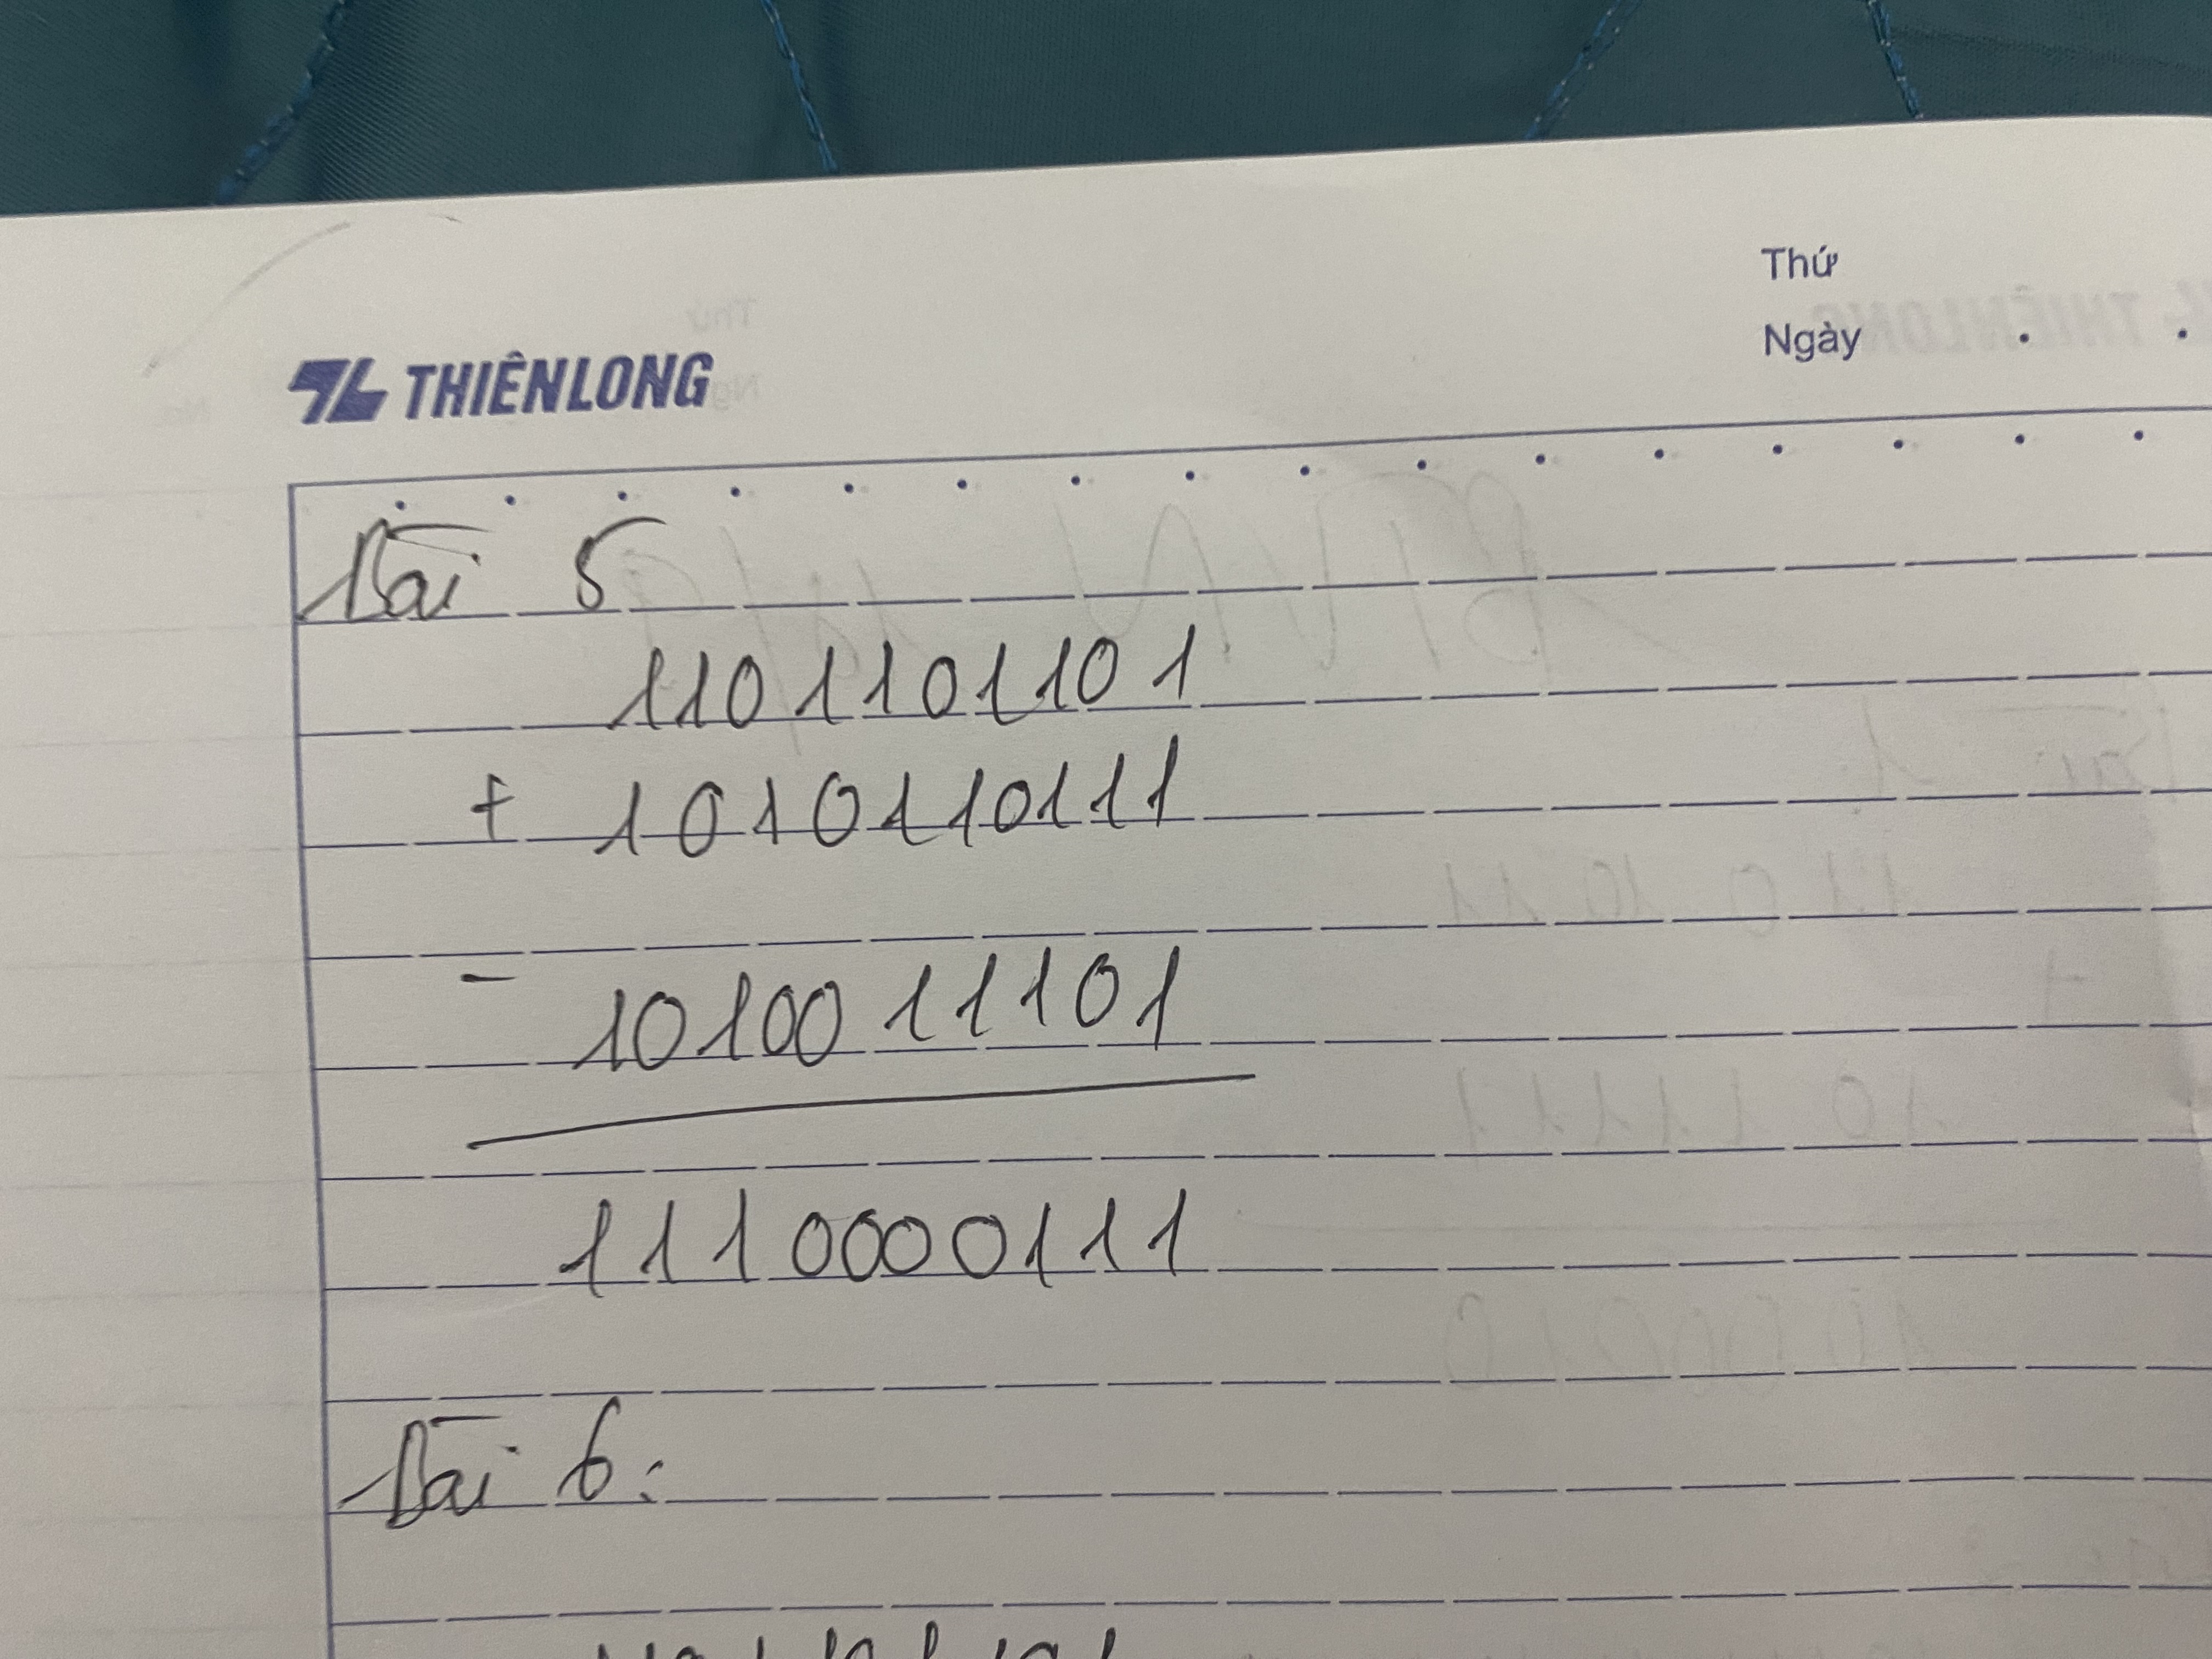 THIÊN LONG
Thứ
Ngày
Bài 5
110110110 1
+ 1010110111
- 10100 11101
1110000111
Bài 6: